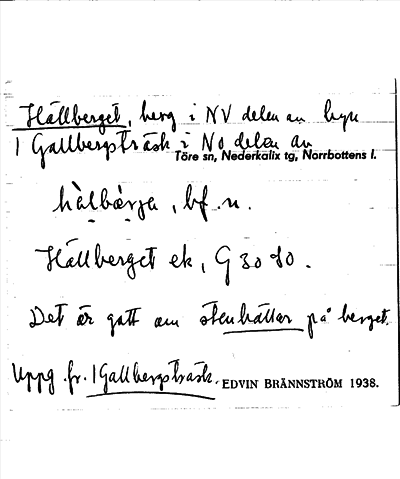 Hällberget, berg i NV delen av byn
Gallbergsträsk i NO delen av
Töre sn, Nederkalix tg, Norrbottens l.
hàlbæ̀rʒa, bf. n.
Hällberget ek, G 30 d0.
Det är gott om stenhällar på berget.
Uppg. fr. Gallbergsträsk. EDVIN BRÄNNSTRÖM 1938.